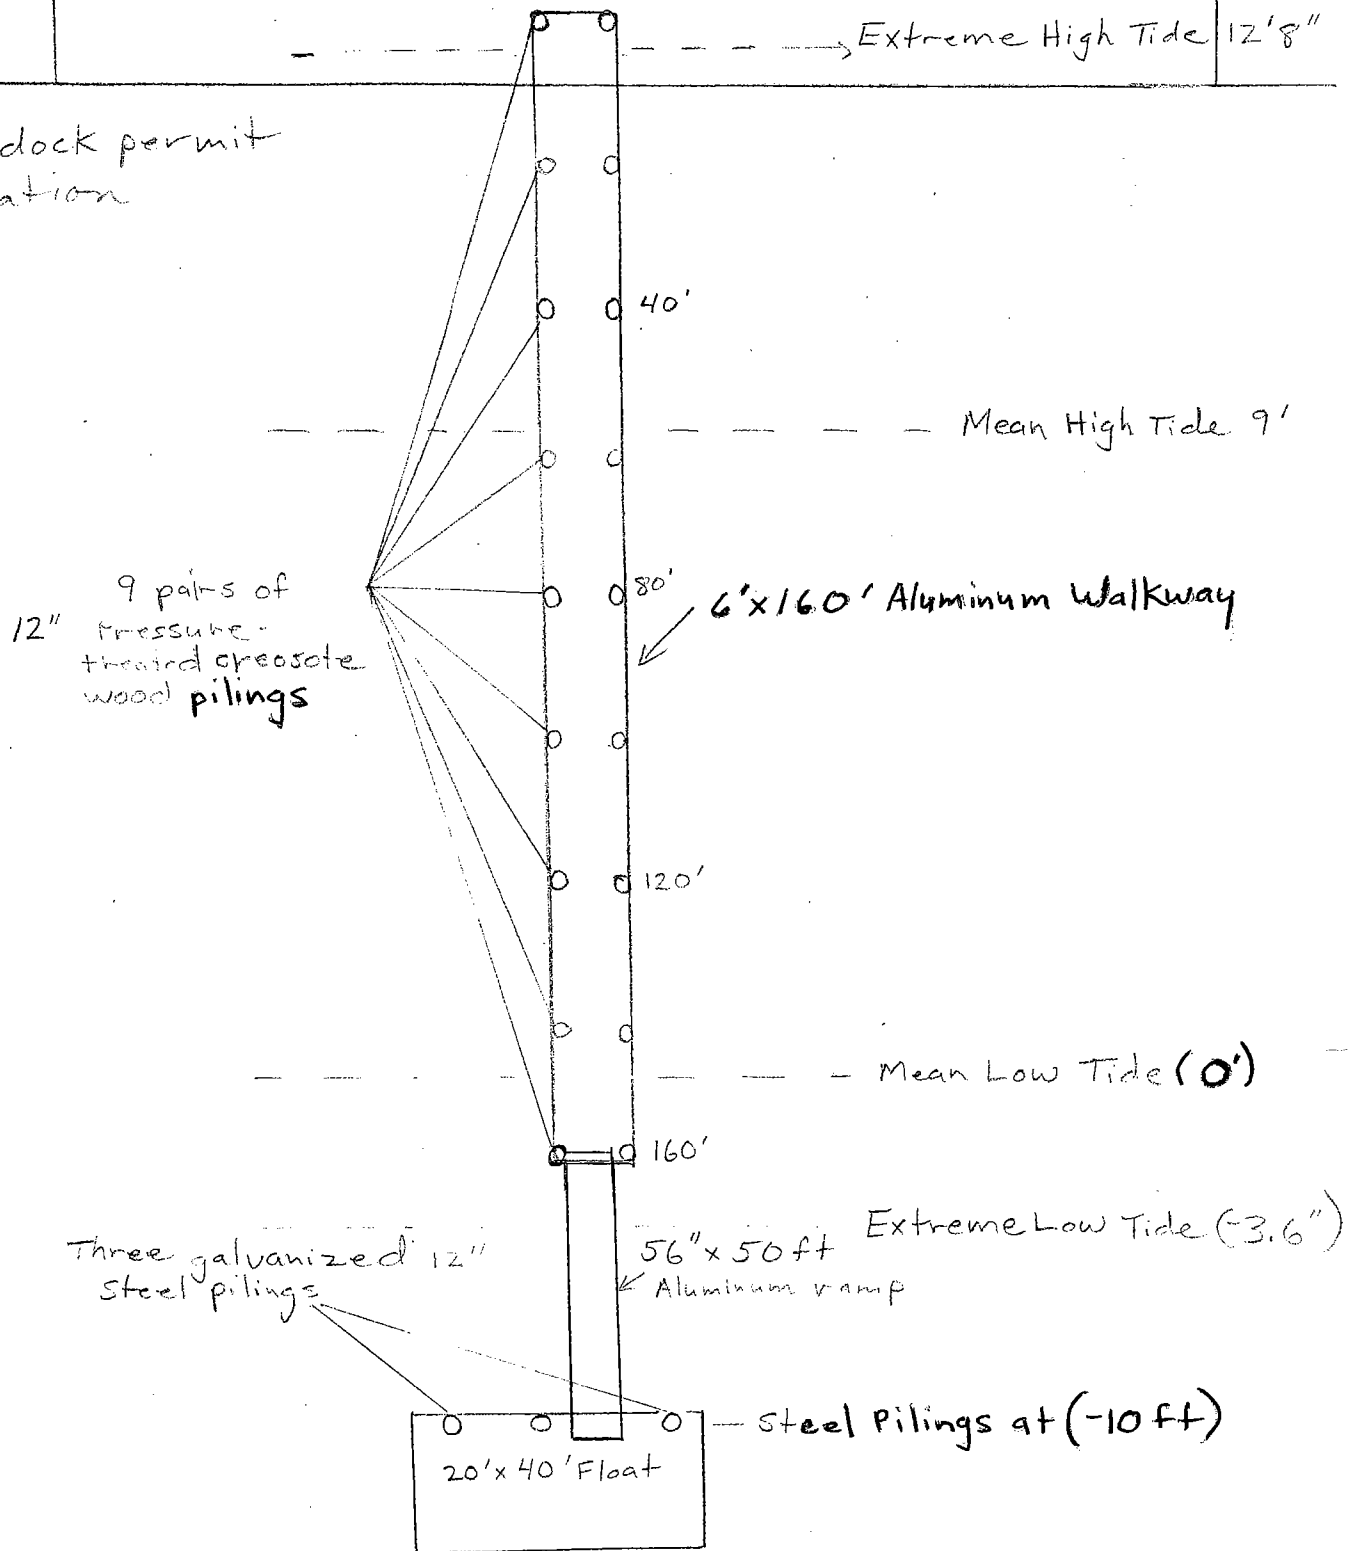 Extreme High Tide 12'8"
dock permit
ation
40'
Mean High Tide 9'
9 pairs of
12" Pressure-
treaird creosote
wood pilings
80'
6'x160' Aluminum Walkway
120'
Mean Low Tide (0')
160'
Extreme Low Tide (-3.6")
56" x 50 ft
Aluminum ramp
Three galvanized 12"
Steel pilings
Steel Pilings at (-10 ft)
20'x 40' Float